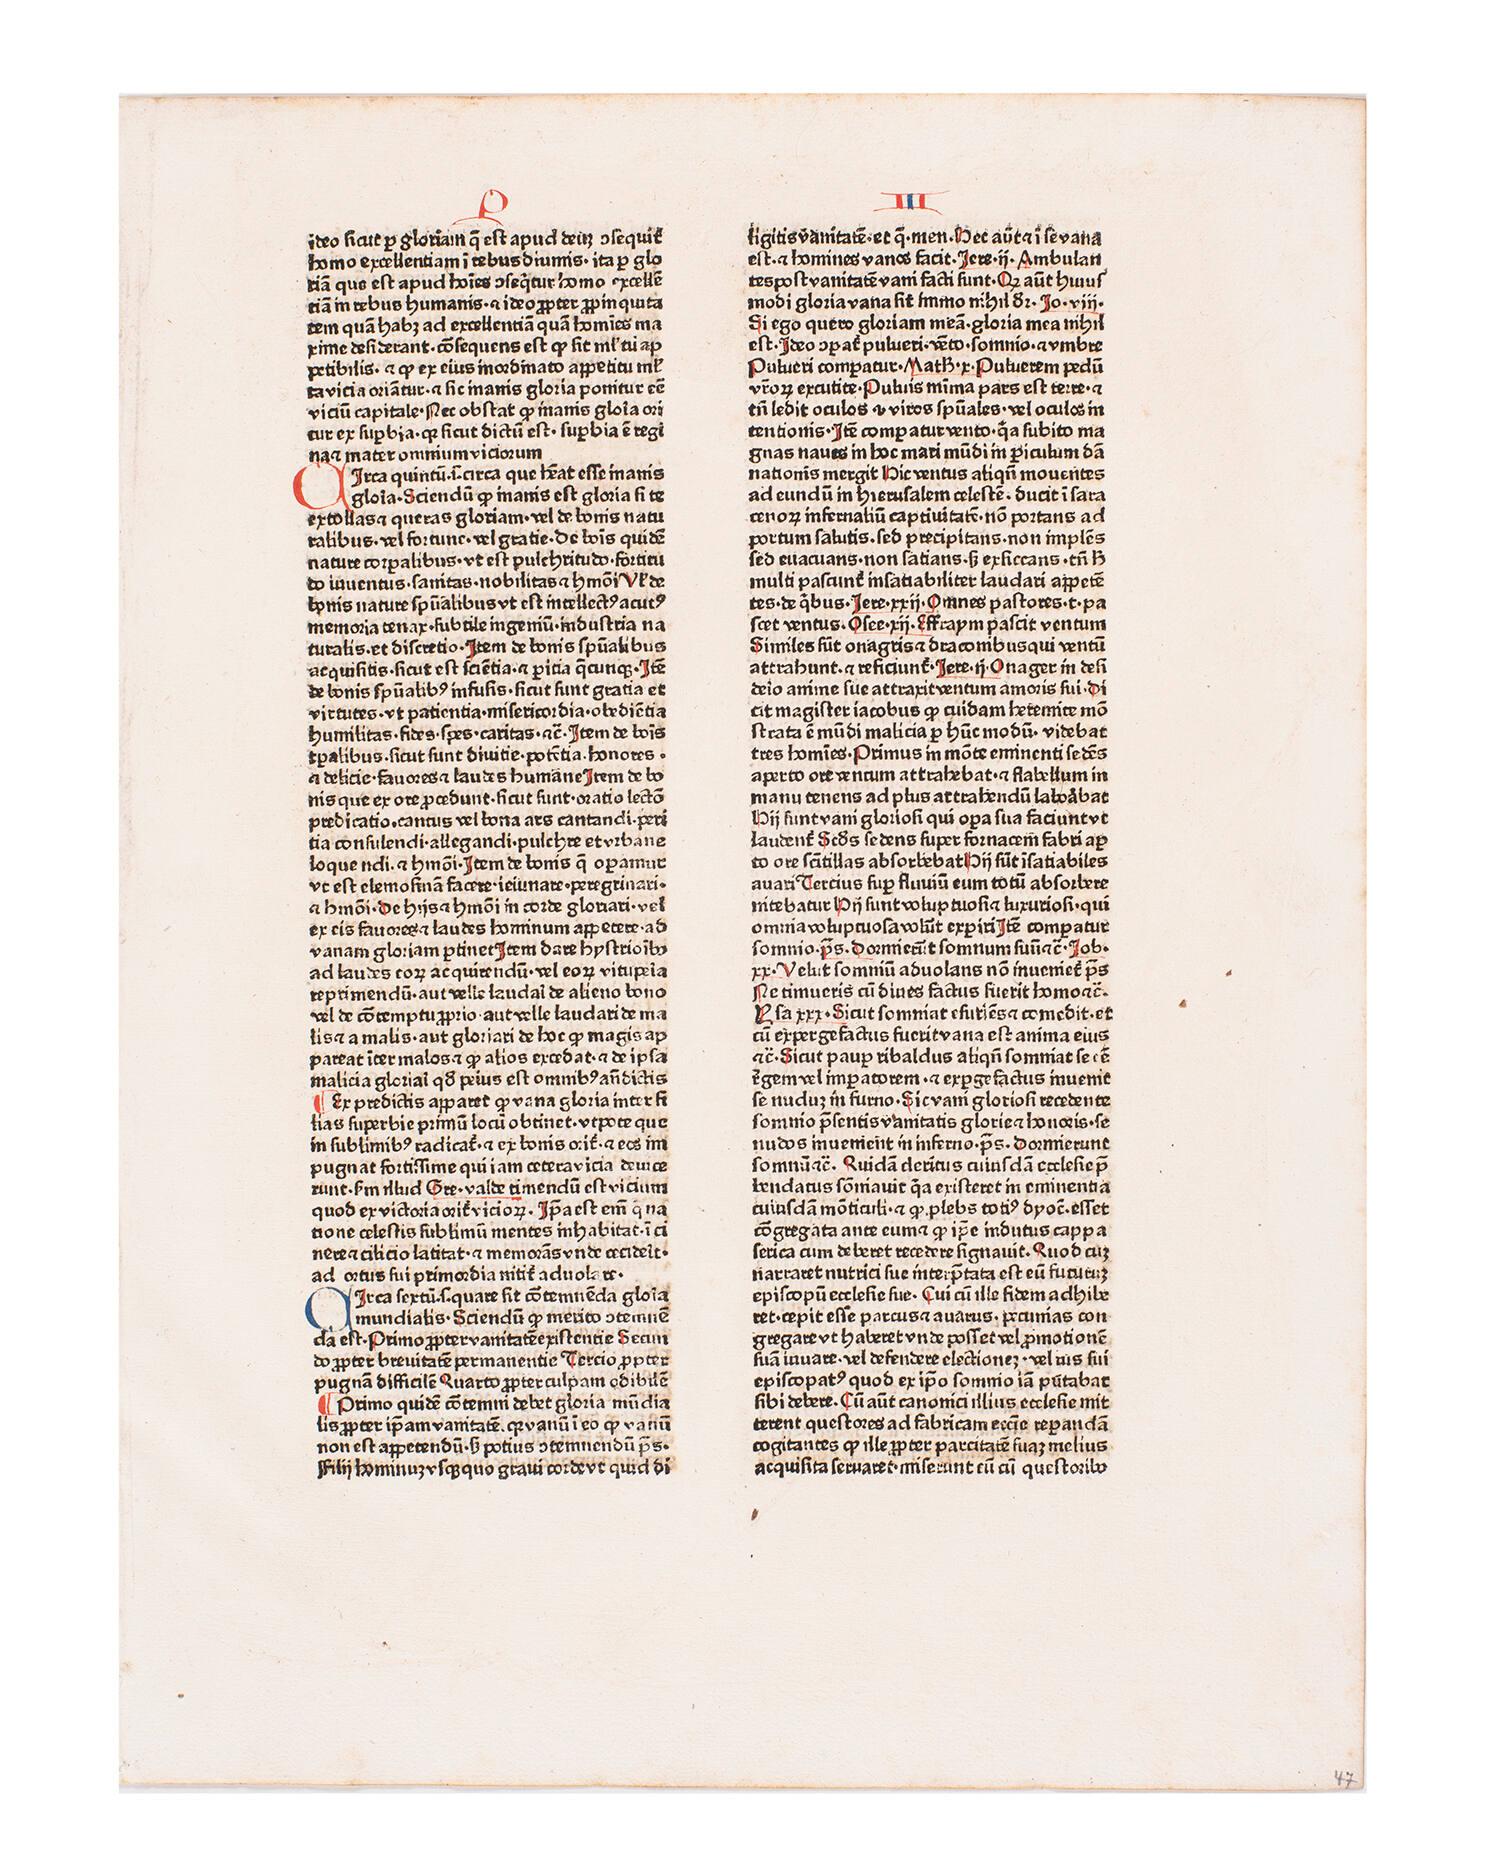 P
III
ideo sicut ꝑ gloriam q̄ est apud deuꝫ ↄsequit᷑
homo excellentiam ī rebus diuinis· ita ꝑ glo
riā que est apud hoīes ↄseq̄tur homo excellē
tiā in rebus humanis·⁊ ideo ꝓpter ꝓpinquita
tem quā habꝫ ad excellentiā quā homīes ma
xime desiderant·cōsequens est ꝙ sit ml̄tū ap
petibilis· ⁊ ꝙ ex eius inordinato appetitu ml̄
ta vicia oriātur·⁊ sic inanis gloria ponitur eē
viciū capitale·Nec obstat ꝙ inanis gloīa ori
tur ex suꝑbia·qꝛ sicut dictū est· suꝑbia ē regi
na⁊ mater omnium viciorum
CIrca quintū·s̄·circa que hēat esse inanis
gloīa·Sciendū ꝙ inanis est gloria si te
extollas⁊ queras gloriam·vel de bonis natu
ralibus·vel fortune·vel gratie·De boīs quidē
nature corꝑalibus·vt est pulchritudo·fortitu
do iuuentus·sanitas·nobilitas⁊ hmōi Vl̄ de
bonis nature spūalibus vt est intellectꝰ acutꝰ
memoria tenax·subtile ingeniū·industria na
turalis·et discretio·Item de bonis spūalibus
acquisitis·sicut est sciētia·⁊ ꝑitia q̄cunqꝫ·Itē
de bonis spūalibꝰ infusis·sicut sunt gratia et
virtutes·vt patientia·misericordia·obediētia
humilitas·fides·spes·caritas·⁊c̄·Item de boīs
tꝑalibus·sicut sunt diuitie·potētia·honores·
⁊ delicie·fauores⁊ laudes humāne Item de bo
nis que ex ore ꝓcedunt·sicut sunt·oratio lectō
predicatio·cantus vel bona ars cantandi·peri
tia consulendi·allegandi·pulchre et vrbane
loquendi·⁊ hmōi·Item de bonis q̄ oꝑamur
vt est elemosinā facere·ieiunare·peregrinari·
⁊ hmōi·De hijs⁊ hmōi in corde gloriari·vel
ex eis fauores⁊ laudes hominum appetere·ad
vanam gloriam ꝑtinet Item dare hystrioībꝰ
ad laudes eoꝝ acquirendū·vel eoꝝ vitupeīa
reprimendū·aut velle laudaī de alieno bono
vel de cōtemptu ꝓprio·aut velle laudari de ma
lis⁊ a malis·aut gloriari de hoc ꝙ magis ap
pareat īter malos⁊ ꝙ alios excedat·⁊ de ipsa
malicia gloriaī qd̄ peius est omnibꝰ an̄dictis
¶ Ex predictis apparet ꝙ vana gloria inter fi
lias superbie primū locū obtinet·vtpote que
in sublimibꝰ radicat᷑·⁊ ex bonis orit᷑·⁊ eos im
pugnat fortissime qui iam cetera vicia deuice
runt·s̄m illud Gre·valde timendū est vicium
quod ex victoria orit᷑ vicioꝝ· Ip̄a est em̄ q̄ na
tione celestis sublimiū mentes inhabitat·ī ci
nere⁊ cilicio latitat·⁊ memorās vnde cecideīt·
ad ortus sui primordia nitit᷑ aduolare·
CIrca sextū·s̄·quare sit cōtemnēda gloīa
mundialis·Sciendū ꝙ merito ↄtemnē
da est·Primo ꝓpter vanitatē existentie Secun
do ꝓpter breuitatē permanentie Tercio ꝓpter
pugnā difficilē Quarto ꝓpter culpam odibilē
¶ Primo quidē cōtemni debet gloria mūdia
lis ꝓpter ip̄am vanitatē·qꝛ vanū ī eo ꝙ vanū
non est appetendū·sꝫ potius ↄtemnendū p̄s·
Filij hominuꝫ vsqꝫquo graui corde vt quid di
ligitis vanitatē·et q̄·men·Hec aūt⁊ ī se vana
est·⁊ homines vanos facit·Jere·ij· Ambulan
tes post vanitatē vani facti sunt·Qꝛ aūt huius
modi gloria vana sit immo nihil dr̄· Jo·viij·
Si ego quero gloriam meā·gloria mea nihil
est·Ideo ↄꝑat᷑ pulueri·vēto·somnio·⁊ vmbre
Pulueri comꝑatur·Math·x·Puluerem pedū
vr̄oꝝ excutite·Puluis mīma pars est terre·⁊
tn̄ ledit oculos ⁊ viros spūales·vel oculos in
tentionis·Itē comꝑatur vento·q̄a subito ma
gnas naues in hoc mari mūdi in ꝑiculum dā
nationis mergit Hic ventus aliqn̄ mouentes
ad eundū in hierusalem celestē· ducit ī sara
cenoꝝ infernaliū captiuitatē·nō portans ad
portum salutis·sed precipitans·non implēs
sed euacuans·non satians·sꝫ exsiccans·tn̄ ħ
multi pascunt᷑ insatiabiliter laudari appetē
tes·de q̄bus·Jere·xxij·Omnes pastores·t·pa
scet ventus·Osee·xij·Effraym pascit ventum
Similes sūt onagris⁊ draconibus qui ventū
attrahunt·⁊ reficiunt᷑·Jere·ij·Onager in desi
deīo anime sue attraxit ventum amoris sui·Di
cit magister iacobus ꝙ cuidam heremite mō
strata ē mūdi malicia ꝑ hūc modū· videbat
tres homīes·Primus in mōte eminenti sedēs
aperto ore ventum attrahebat·⁊ flabellum in
manu tenens ad plus attrahendū laborabat
Hij sunt vani gloriosi qui oꝑa sua faciunt vt
laudent᷑ Scd̄s sedens super fornacem fabri aꝑ
to ore scītillas absorbebat Hij sūt īsatiabiles
auari Tercius suꝑ fluuiū eum totū absorbere
nitebatur Hij sunt voluptuosi⁊ luxuriosi·qui
omnia voluptuosa volūt exꝑiri Itē comꝑatur
somnio·p̄s·dormierūt somnum suū⁊c̄·Job·
xx·Velut somniū aduolans nō inueniet᷑ p̄s
Ne timueris cū diues factus fuerit homo⁊c̄·
Ysa xxx·Sicut somniat esuriēs⁊ comedit·et
cū expergefactus fuerit vana est anima eius
⁊c̄·Sicut pauꝑ ribaldus aliqn̄ somniat se eē
regem vel imꝑatorem·⁊ exꝑgefactus inuenit
se nuduꝫ in furno·Sic vani gloriosi recedente
somnio p̄sentis vanitatis glorie⁊ honoris·se
nudos inuenient in inferno·p̄s·dormierunt
somnū⁊c̄· Quidā clericus cuiusdā ecclesie p̄
bendatus sōniauit q̄a existeret in eminentia
cuiusdā mōticuli·⁊ ꝙ plebs totiꝰ dyoc̄·esset
cōgregata ante eum⁊ ꝙ ip̄e indutus cappa
serica cum deberet recedere signauit·Quod cuꝫ
narraret nutrici sue interp̄tata est eū futuruꝫ
episcopū ecclesie sue· Cui cū ille fidem adhibe
ret·cepit esse parcus⁊ auarus· pecunias con
gregare vt haberet vnde posset vel ꝓmotionē
suā iuuare·vel defendere electioneꝫ·vel ius sui
episcopatꝰ quod ex ip̄o somnio iā putabat
sibi debere·Cū aūt canonici illius ecclesie mit
terent questores ad fabricam ecc̄ie reꝑandā
cogitantes ꝙ ille ꝓpter parcitatē suaꝫ melius
acquisita seruaret·miserunt eū cū questoribꝰ
47